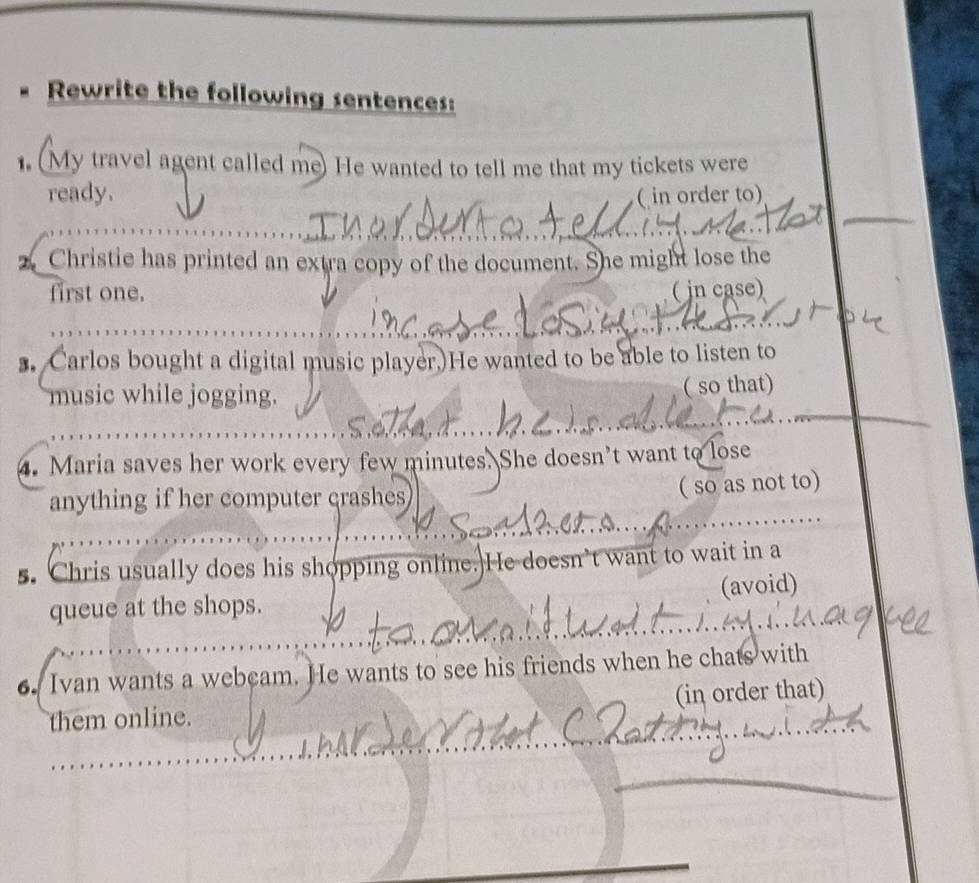 Rewrite the following sentences:
1. My travel agent called me. He wanted to tell me that my tickets were
ready. ( in order to)
In order to telling me that
2. Christie has printed an extra copy of the document. She might lose the
first one. ( in case)
in case losing the first one
3. Carlos bought a digital music player. He wanted to be able to listen to
music while jogging. ( so that)
so that he is able to
4. Maria saves her work every few minutes. She doesn't want to lose
anything if her computer crashes ( so as not to)
5. Chris usually does his shopping online. He doesn't want to wait in a
queue at the shops. (avoid)
to avoid wait
6. Ivan wants a webcam. He wants to see his friends when he chats with
them online. (in order that)
in order that Chatting with